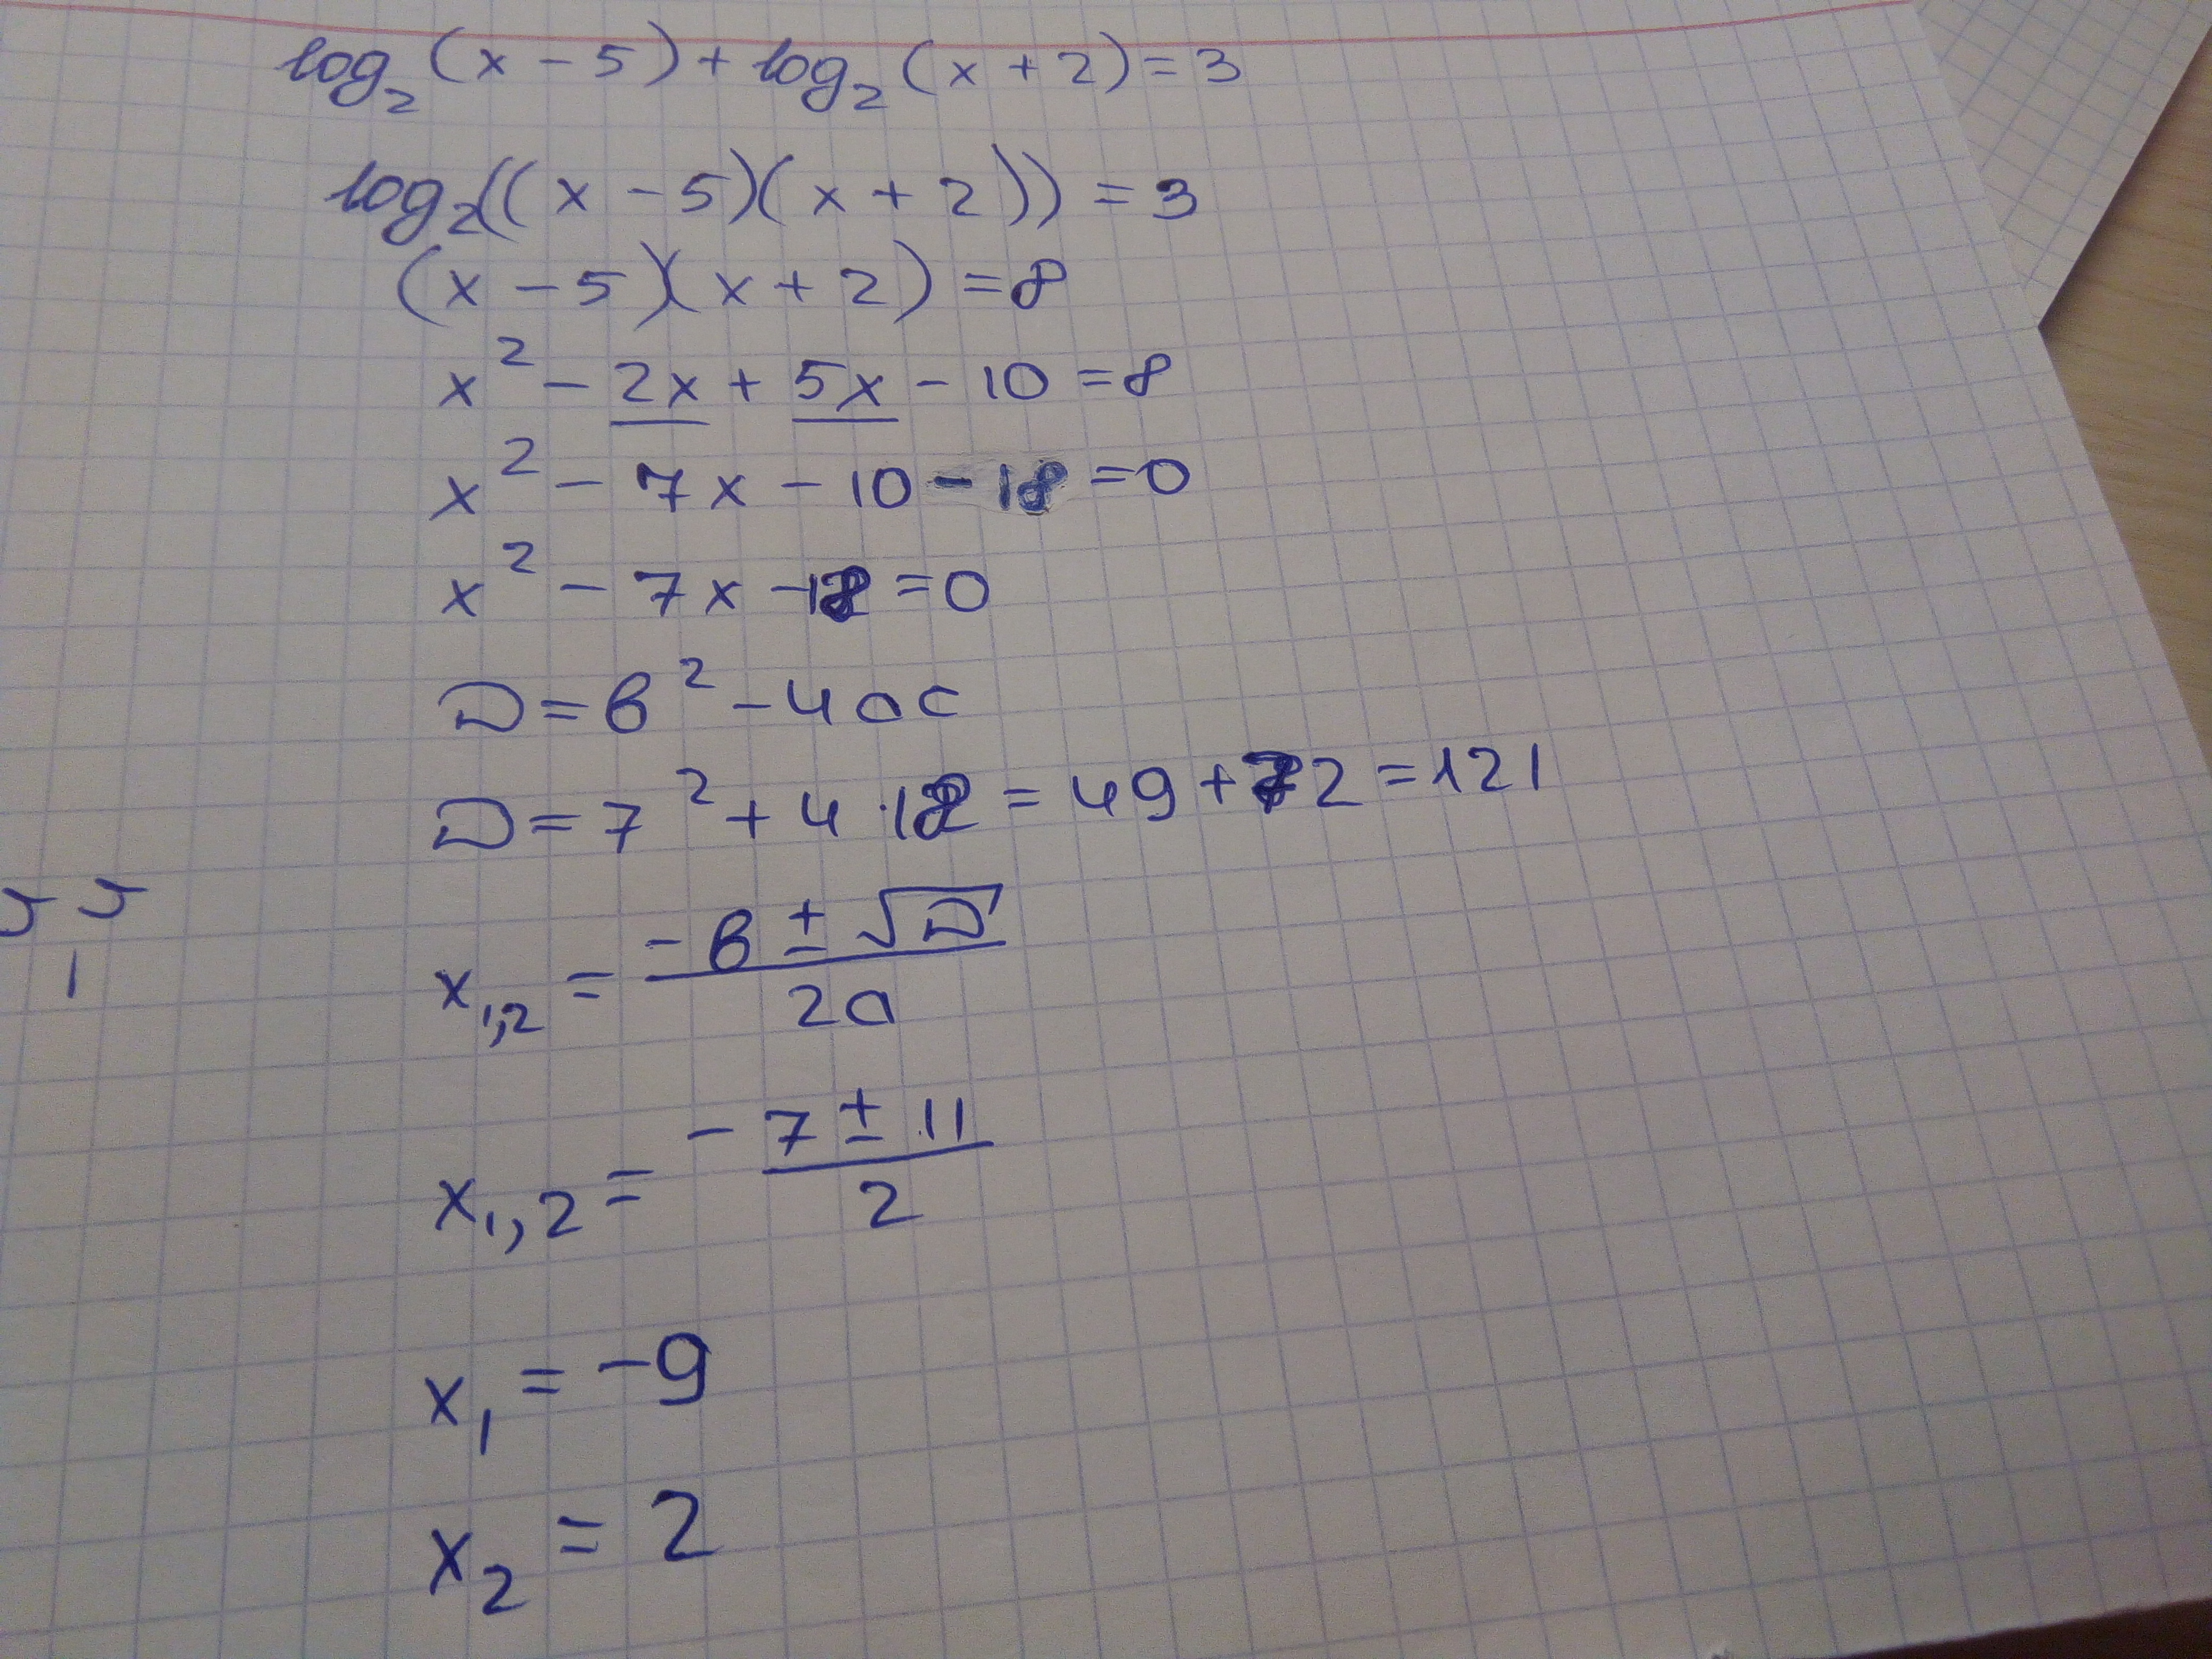 log₂(x - 5) + log₂(x + 2) = 3
log₂((x - 5)(x + 2)) = 3
(x - 5)(x + 2) = 8
x² - 2x + 5x - 10 = 8
x² - 7x - 10 - 18 = 0
x² - 7x - 18 = 0
D = b² - 4ac
D = 7² + 4 · 18 = 49 + 72 = 121
x₁,₂ = (-b ± √D) / 2a
x₁,₂ = -(7 ± 11) / 2
x₁ = -9
x₂ = 2